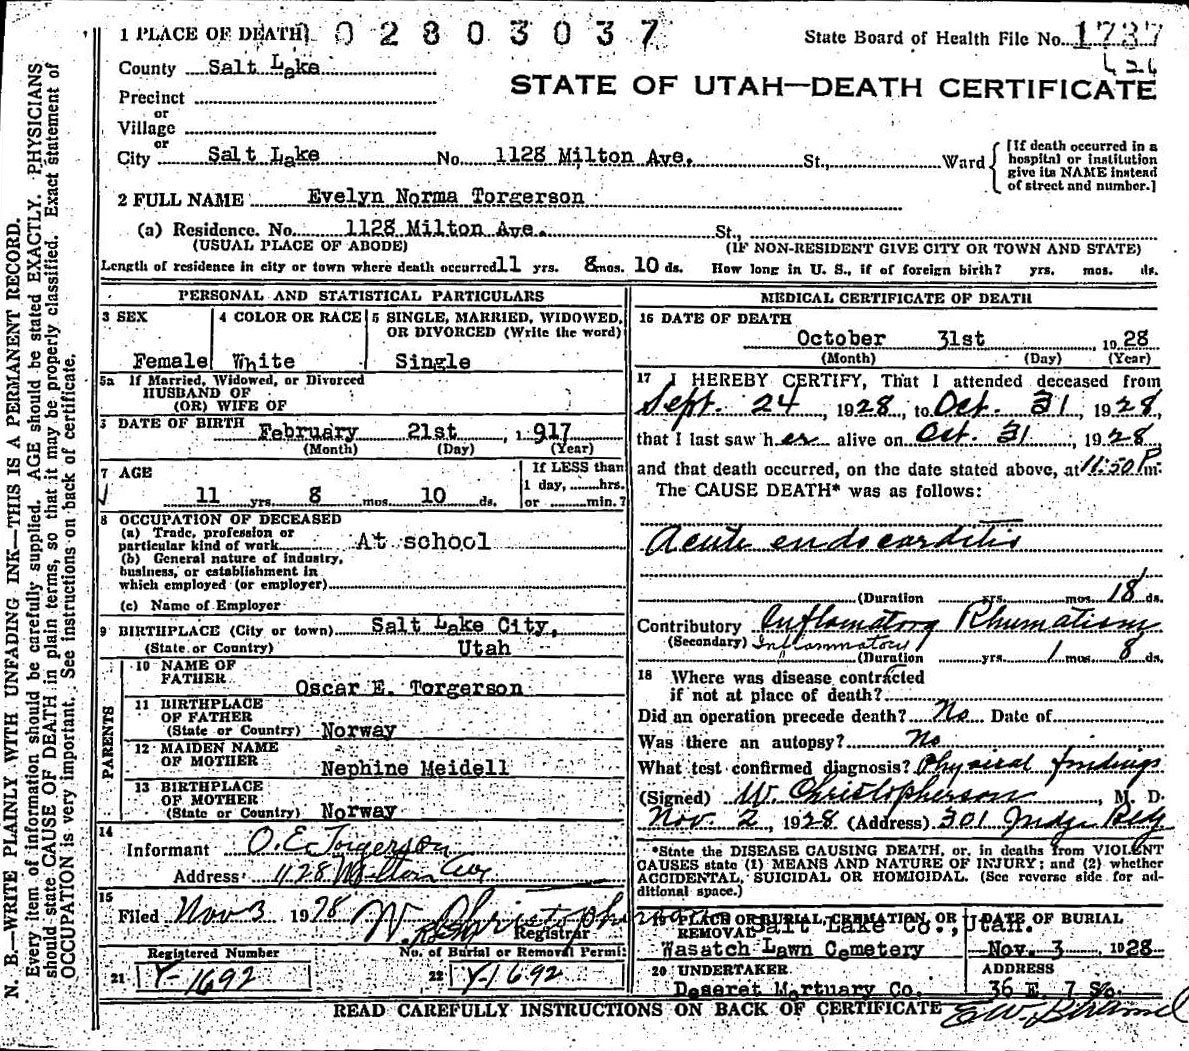 1 PLACE OF DEATH 0 2 8 0 3 0 3 7 State Board of Health File No. 1737
County Salt Lake
STATE OF UTAH—DEATH CERTIFICATE
Precinct
or
Village
or
City Salt Lake No. 1128 Milton Ave. St., Ward
[If death occurred in a
hospital or institution
give its NAME instead
of street and number.]
2 FULL NAME Evelyn Norma Torgerson
(a) Residence. No. 1128 Milton Ave. St.,
(USUAL PLACE OF ABODE) (IF NON-RESIDENT GIVE CITY OR TOWN AND STATE)
Length of residence in city or town where death occurred 11 yrs. 8 mos. 10 ds. How long in U. S., if of foreign birth? yrs. mos. ds.
PERSONAL AND STATISTICAL PARTICULARS
3 SEX 4 COLOR OR RACE 5 SINGLE, MARRIED, WIDOWED,
OR DIVORCED (Write the word)
Female White Single
5a If Married, Widowed, or Divorced
HUSBAND OF
(OR) WIFE OF
DATE OF BIRTH February 21st, 1917
(Month) (Day) (Year)
7 AGE If LESS than
1 day, hrs.
11 yrs. 8 mos. 10 ds. or min.?
8 OCCUPATION OF DECEASED
(a) Trade, profession or
particular kind of work At school
(b) General nature of industry,
business, or establishment in
which employed (or employer)
(c) Name of Employer
9 BIRTHPLACE (City or town) Salt Lake City,
(State or Country) Utah
PARENTS
10 NAME OF
FATHER Oscar E. Torgerson
11 BIRTHPLACE
OF FATHER
(State or Country) Norway
12 MAIDEN NAME
OF MOTHER Nephine Meidell
13 BIRTHPLACE
OF MOTHER
(State or Country) Norway
14
Informant O.E. Torgerson
Address 1128 Milton Ave
15
Filed Nov 3 1928 W. Christopherson
Registrar
Registered Number No. of Burial or Removal Permit
21 Y-1692 22 Y-1692
MEDICAL CERTIFICATE OF DEATH
16 DATE OF DEATH
October 31st 1928
(Month) (Day) (Year)
17 I HEREBY CERTIFY, That I attended deceased from
Sept. 24, 1928, to Oct. 31, 1928,
that I last saw her alive on Oct. 31, 1928,
and that death occurred, on the date stated above, at 11:50 P m.
The CAUSE DEATH* was as follows:
Acute endocarditis
(Duration yrs. mos. 18 ds.
Contributory Inflamatory Rhumatism
(Secondary) Inflammatory
(Duration yrs. 1 mos. 8 ds.
18 Where was disease contracted
if not at place of death?
Did an operation precede death? No Date of
Was there an autopsy? No
What test confirmed diagnosis? Physical findings
(Signed) W. Christopherson, M. D.
Nov. 2, 1928 (Address) 301 Judge Bldg
*State the DISEASE CAUSING DEATH, or, in deaths from VIOLENT
CAUSES state (1) MEANS AND NATURE OF INJURY; and (2) whether
ACCIDENTAL, SUICIDAL OR HOMICIDAL. (See reverse side for ad-
ditional space.)
19 PLACE OF BURIAL, CREMATION, OR DATE OF BURIAL
REMOVAL Salt Lake Co., Utah.
Wasatch Lawn Cemetery Nov. 3 1928
20 UNDERTAKER ADDRESS
Deseret Mortuary Co. 36 E 7 So.
READ CAREFULLY INSTRUCTIONS ON BACK OF CERTIFICATE
N. B.—WRITE PLAINLY WITH UNFADING INK—THIS IS A PERMANENT RECORD.
Every item of information should be carefully supplied. AGE should be stated EXACTLY. PHYSICIANS
should state CAUSE OF DEATH in plain terms, so that it may be properly classified. Exact statement of
OCCUPATION is very important. See instructions on back of certificate.